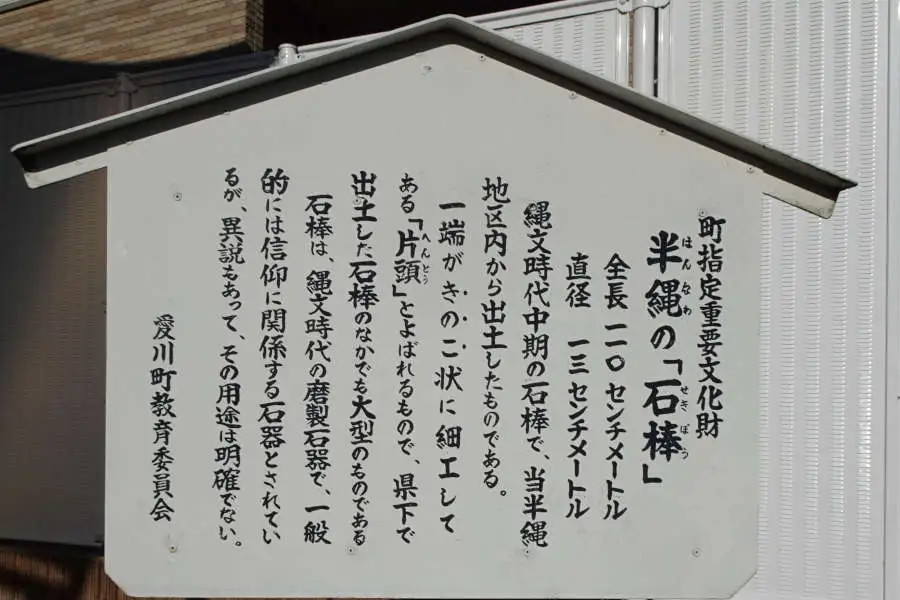 町指定重要文化財
半縄の「石棒」
はんなわ せきぼう
全長 一二〇センチメートル
直径 一三センチメートル
縄文時代中期の石棒で、当半縄
地区内から出土したものである。
一端がきのこ状に細工して
ある「片頭」とよばれるもので、県下で
へんとう
出土した石棒のなかでも大型のものである
石棒は、縄文時代の磨製石器で、一般
的には信仰に関係する石器とされてい
るが、異説もあって、その用途は明確でない。
愛川町教育委員会